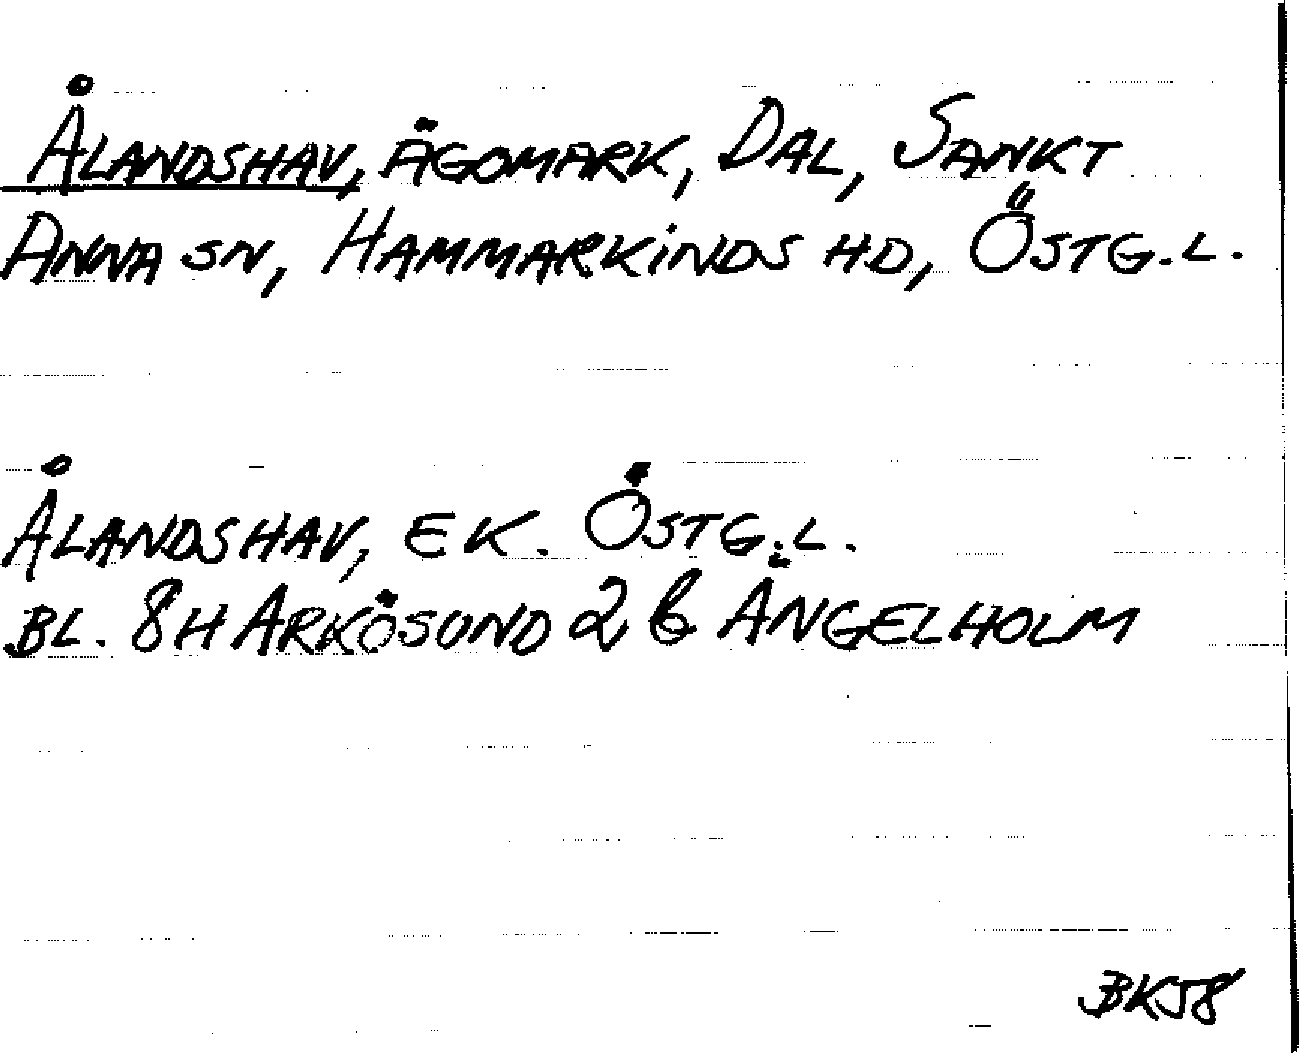 ÅLANDSHAV, ÄGOMARK, DAL, SANKT
ANNA SN, HAMMARKINDS HD, ÖSTG.L.
ÅLANDSHAV, EK. ÖSTG.L.
BL. 8H ARKÖSUND 2 b ÄNGELHOLM
BKJ8